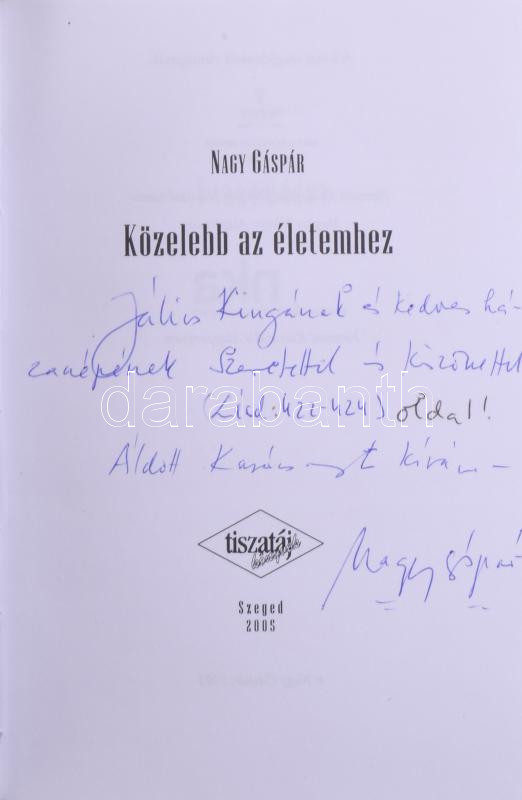 NAGY GÁSPÁR
Közelebb az életemhez
Jálics Kingának és kedves há-
zanépének Szeretettel és köszönettel
(Lásd: 421-424) oldal!
Áldott Karácsonyt kíván –
Nagy Gáspár
tiszatáj
könyvek
Szeged
2005
darabanth